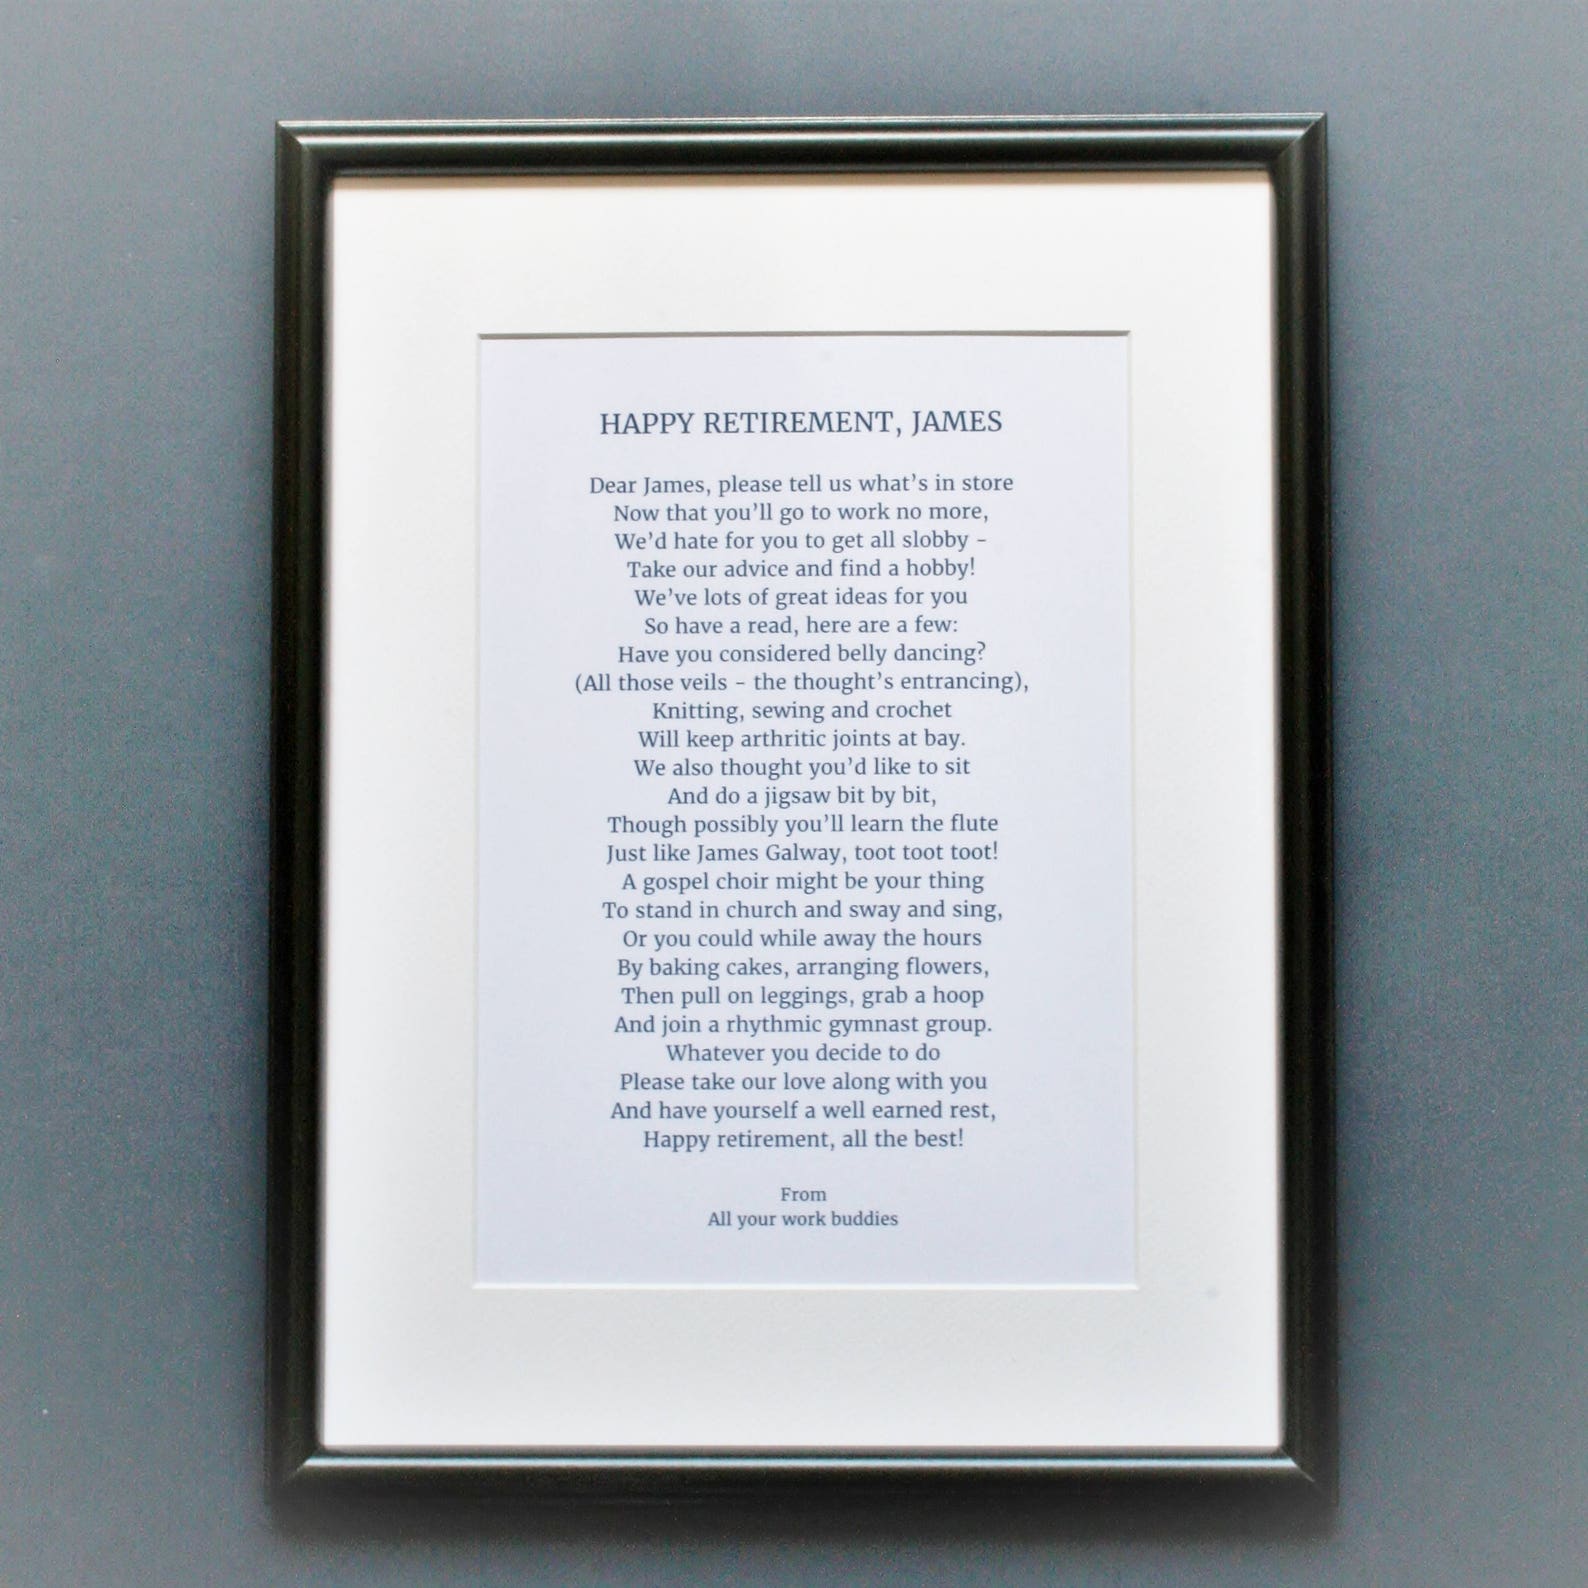 HAPPY RETIREMENT, JAMES
Dear James, please tell us what's in store
Now that you'll go to work no more,
We'd hate for you to get all slobby -
Take our advice and find a hobby!
We've lots of great ideas for you
So have a read, here are a few:
Have you considered belly dancing?
(All those veils - the thought's entrancing),
Knitting, sewing and crochet
Will keep arthritic joints at bay.
We also thought you'd like to sit
And do a jigsaw bit by bit,
Though possibly you'll learn the flute
Just like James Galway, toot toot toot!
A gospel choir might be your thing
To stand in church and sway and sing,
Or you could while away the hours
By baking cakes, arranging flowers,
Then pull on leggings, grab a hoop
And join a rhythmic gymnast group.
Whatever you decide to do
Please take our love along with you
And have yourself a well earned rest,
Happy retirement, all the best!
From
All your work buddies